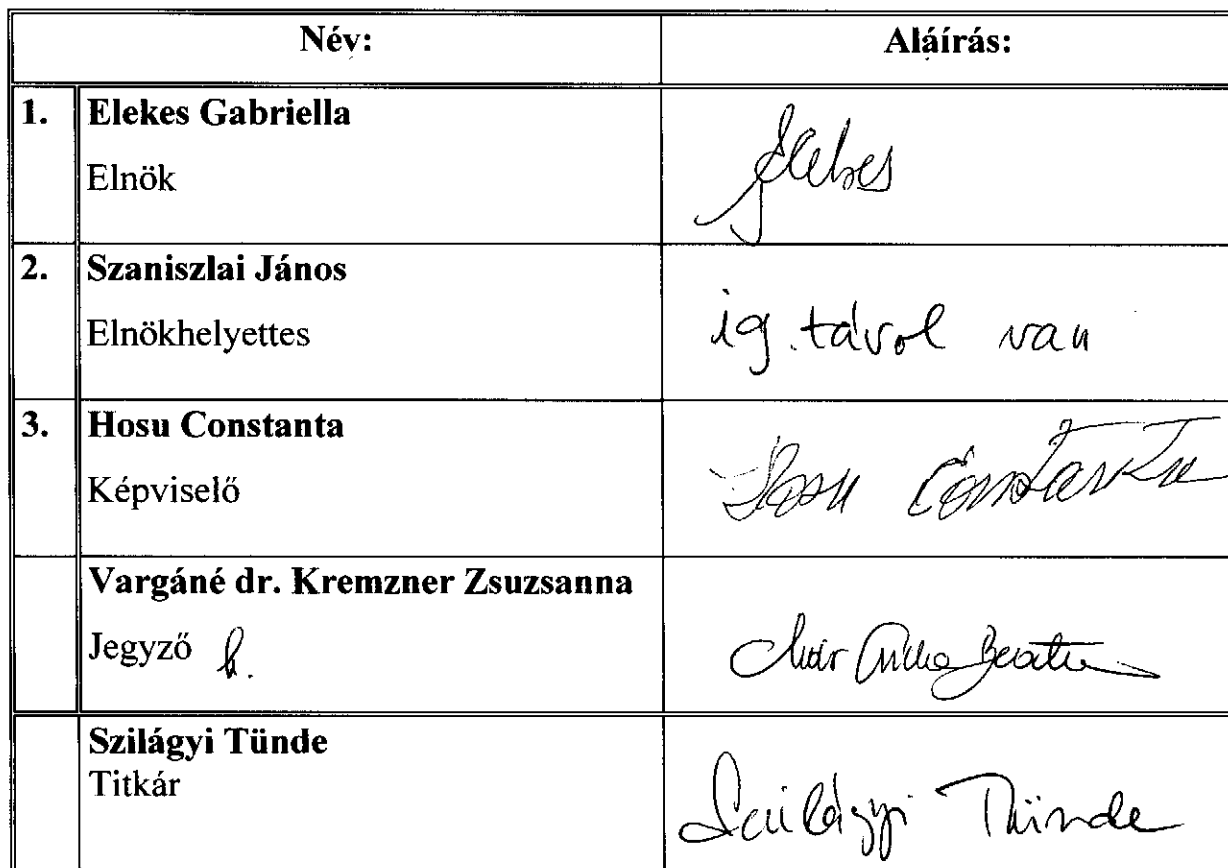 Név: Aláírás:
1. Elekes Gabriella
Elnök Elekes
2. Szaniszlai János
Elnökhelyettes ig. távol van
3. Hosu Constanta
Képviselő Hosu Constanta
Vargáné dr. Kremzner Zsuzsanna
Jegyző h.
Szilágyi Tünde
Titkár Szilágyi Tünde